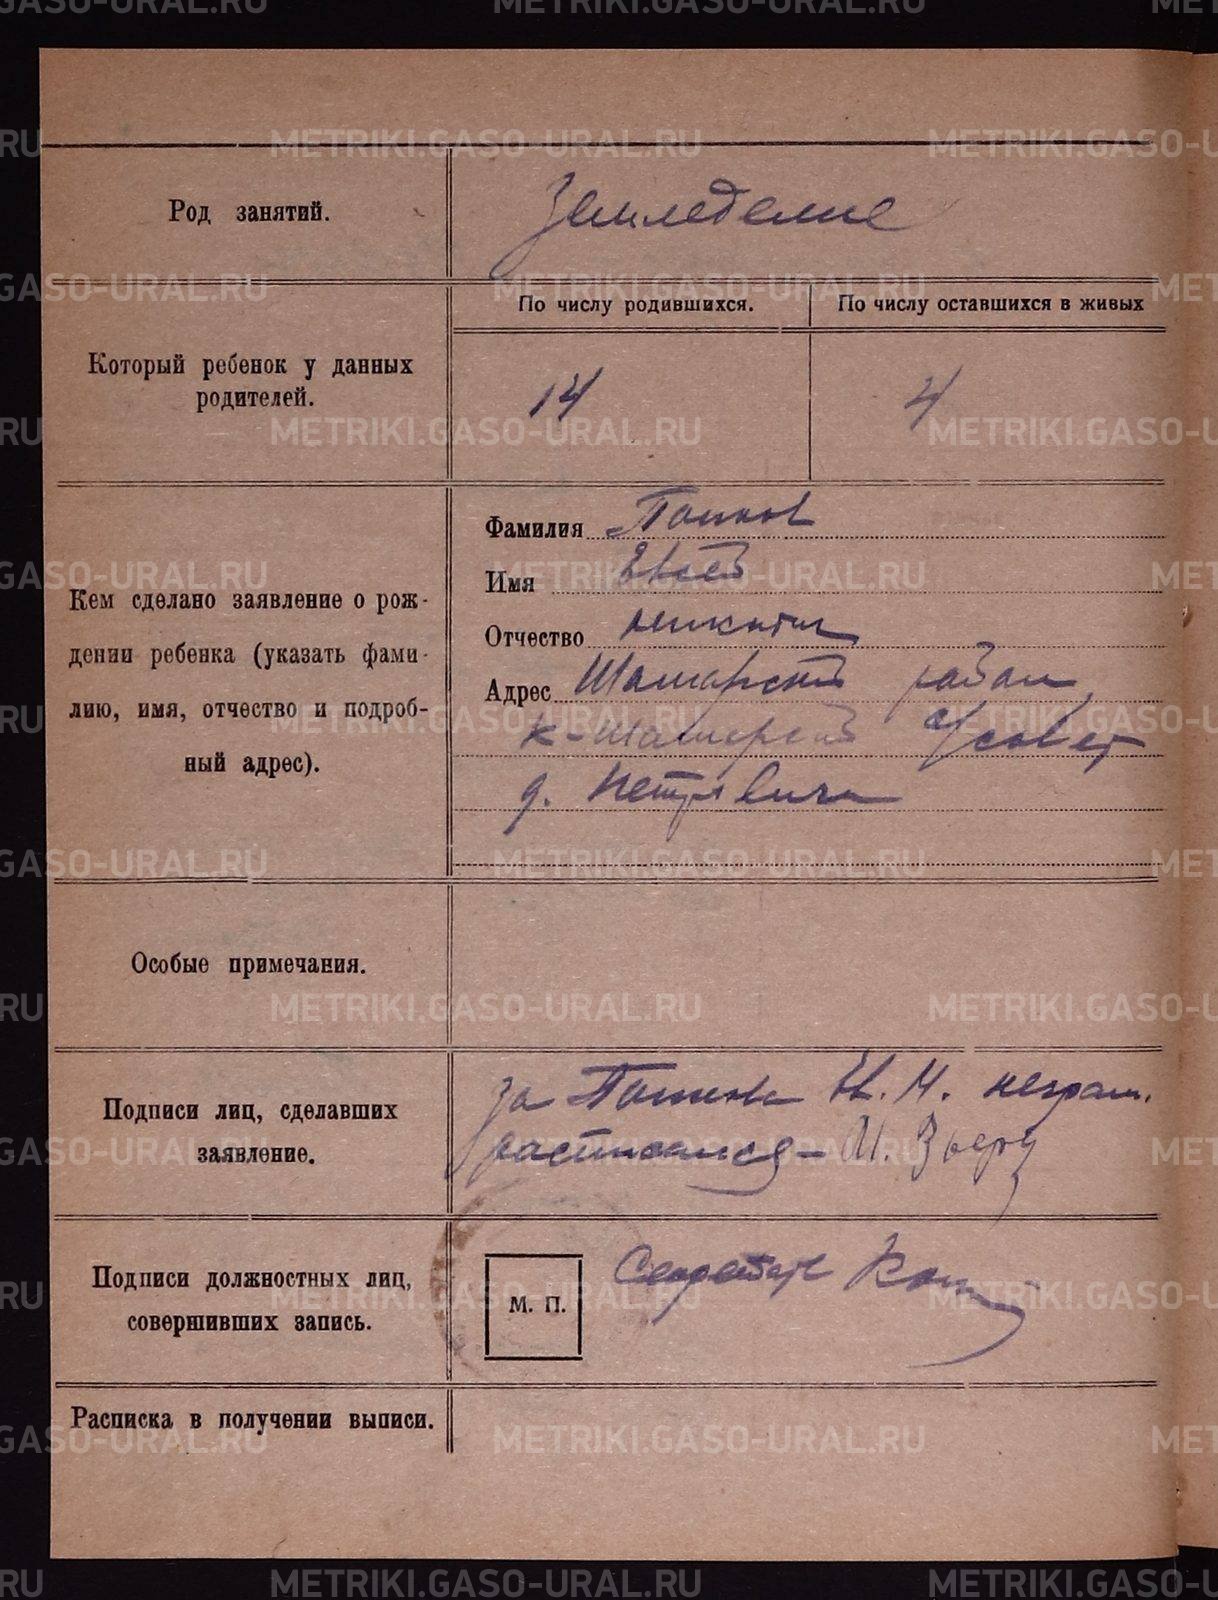 METRIKI.GASO-URAL.RU
Род занятий.
Земледелие
Который ребенок у данных
родителей.
По числу родившихся.
По числу оставшихся в живых
14
4
Кем сделано заявление о рож-
дении ребенка (указать фами-
лию, имя, отчество и подроб-
ный адрес).
Фамилия
Имя Евсей
Отчество Никитич
Адрес Шамарский район,
к-Шамарский С/совет
д.
Особые примечания.
Подписи лиц, сделавших
заявление.
за Ев. Н. неграм.
расписался –
Подписи должностных лиц,
совершивших запись.
М. П.
Секретарь
Расписка в получении выписи.